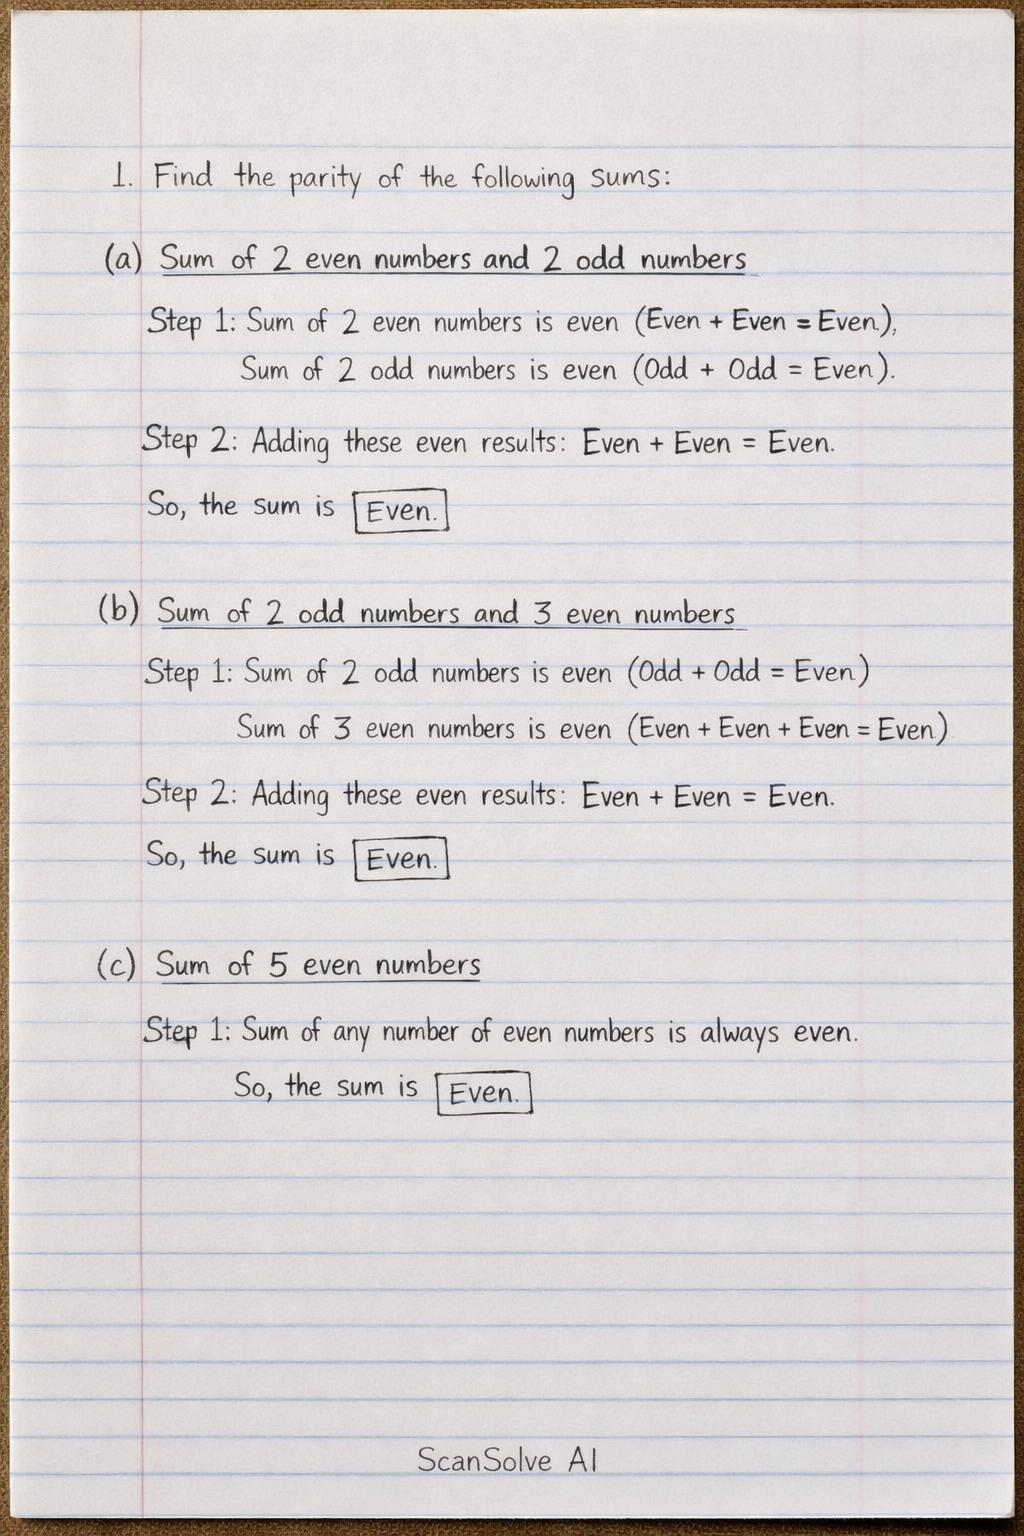 1. Find the parity of the following sums:
(a) Sum of 2 even numbers and 2 odd numbers
Step 1: Sum of 2 even numbers is even (Even + Even = Even.),
Sum of 2 odd numbers is even (Odd + Odd = Even).
Step 2: Adding these even results: Even + Even = Even.
So, the sum is Even.
(b) Sum of 2 odd numbers and 3 even numbers
Step 1: Sum of 2 odd numbers is even (Odd + Odd = Even)
Sum of 3 even numbers is even (Even + Even + Even = Even)
Step 2: Adding these even results: Even + Even = Even.
So, the sum is Even.
(c) Sum of 5 even numbers
Step 1: Sum of any number of even numbers is always even.
So, the sum is Even.
ScanSolve AI